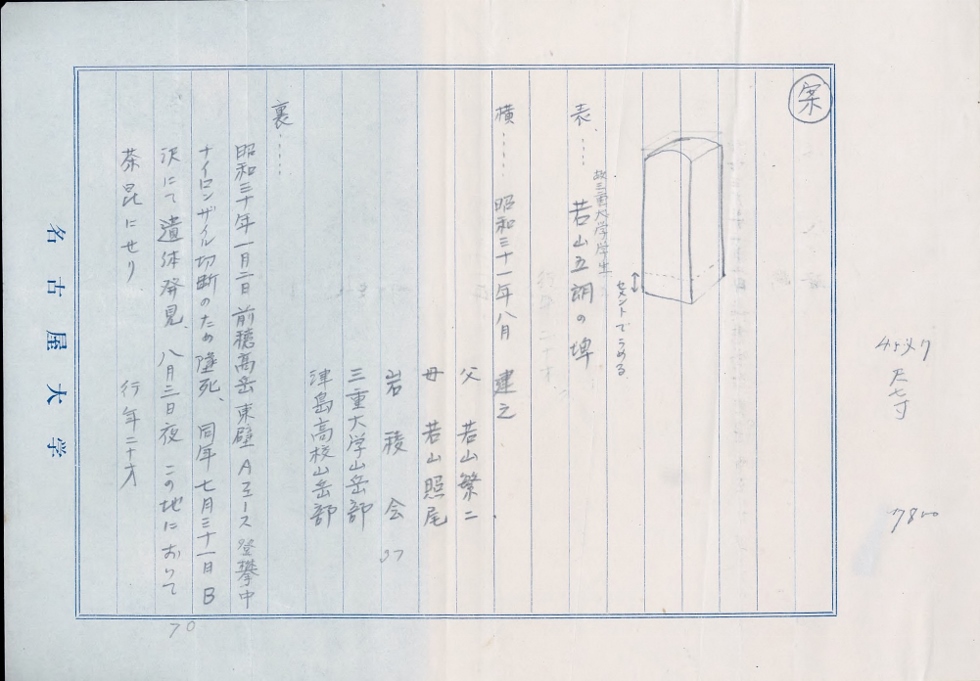 案
セメントでうめる
故三重大学学生
表……若山五朗の埤
横……昭和三十一年八月 建之.
父 若山繁二
母 若山照尾
岩稜会
三重大学山岳部
津島高校山岳部
裏……
昭和三十年一月二日 前穂高岳東壁Aコース登攀中
ナイロンザイル切断のため墜死、同年七月三十一日B
沢にて遺体発見、八月三日夜 この地において
荼昆にせり 行年二十才
名古屋大学
尺七寸
7800
70
37